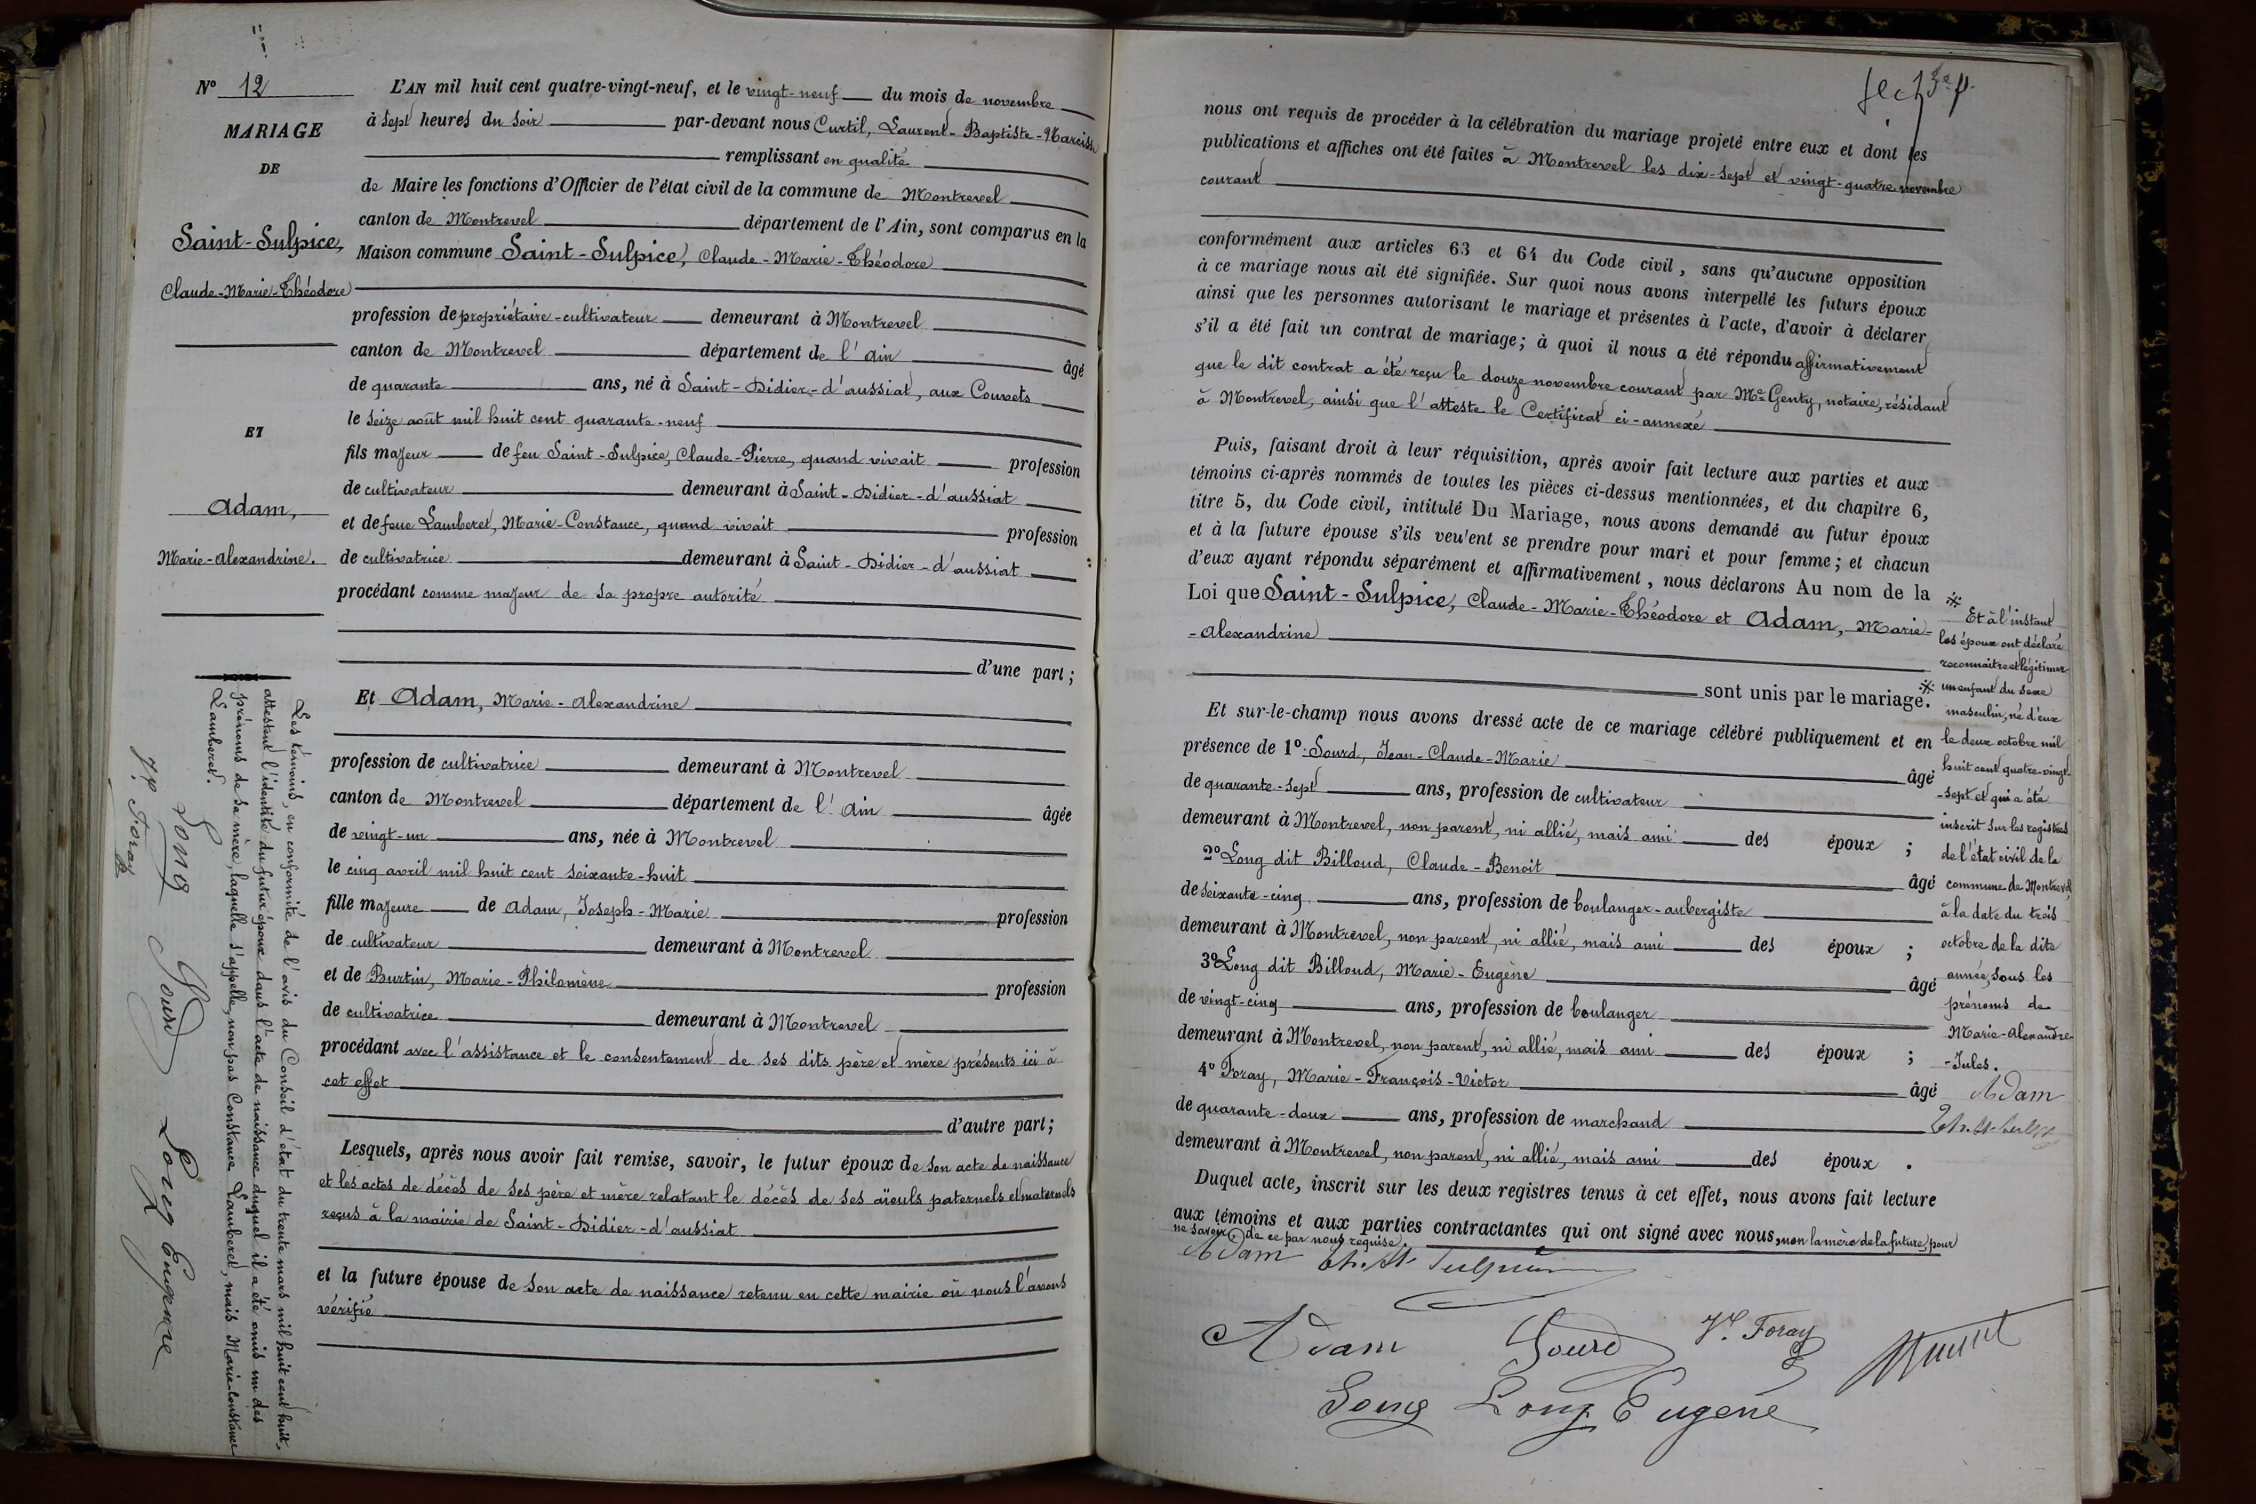 Nº 12
MARIAGE
DE
Saint-Sulpice,
Claude-Marie-Théodore
ET
Adam,
Marie-Alexandrine.
Les témoins, en conformité de l'avis du Conseil d'état du trente mars mil huit cent huit,
attestent l'identité du futur époux dans l'acte de naissance duquel il a été omis un des
prénoms de sa mère, laquelle s'appelle, non pas Constance Lamberet, mais Marie-Constance
Lamberet.
Long Sourd Long Eugène
Foray
L'AN mil huit cent quatre-vingt-neuf, et le vingt-neuf du mois de novembre
à sept heures du soir par-devant nous Curtil, Laurent-Baptiste-Narcisse
remplissant en qualité
de Maire les fonctions d'Officier de l'état civil de la commune de Montrevel
canton de Montrevel département de l'Ain, sont comparus en la
Maison commune Saint-Sulpice, Claude-Marie-Théodore
profession de propriétaire-cultivateur demeurant à Montrevel
canton de Montrevel département de l'ain âgé
de quarante ans, né à Saint-Didier-d'aussiat, aux Couvets
le seize août mil huit cent quarante-neuf
fils majeur de feu Saint-Sulpice, Claude-Pierre, quand vivait profession
de cultivateur demeurant à Saint-Didier-d'aussiat
et de feue Lamberet, Marie-Constance, quand vivait profession
de cultivatrice demeurant à Saint-Didier-d'aussiat
procédant comme majeur de sa propre autorité
d'une part;
Et Adam, Marie-Alexandrine
profession de cultivatrice demeurant à Montrevel
canton de Montrevel département de l'Ain âgée
de vingt-un ans, née à Montrevel
le cinq avril mil huit cent soixante-huit
fille majeure de Adam, Joseph-Marie profession
de cultivateur demeurant à Montrevel
et de Burtin, Marie-Philomène profession
de cultivatrice demeurant à Montrevel
procédant avec l'assistance et le consentement de ses dits père et mère présents ici à
cet effet
d'autre part;
Lesquels, après nous avoir fait remise, savoir, le futur époux de son acte de naissance
et les actes de décès de ses père et mère relatant le décès de ses aïeuls paternels et maternels
reçus à la mairie de Saint-Didier-d'aussiat
et la future épouse de son acte de naissance retenu en cette mairie où nous l'avons
vérifié
nous ont requis de procéder à la célébration du mariage projeté entre eux et dont les
publications et affiches ont été faites à Montrevel les dix-sept et vingt-quatre novembre
courant
conformément aux articles 63 et 64 du Code civil, sans qu'aucune opposition
à ce mariage nous ait été signifiée. Sur quoi nous avons interpellé les futurs époux
ainsi que les personnes autorisant le mariage et présentes à l'acte, d'avoir à déclarer
s'il a été fait un contrat de mariage; à quoi il nous a été répondu affirmativement
que le dit contrat a été reçu le douze novembre courant par Me Genty, notaire, résidant
à Montrevel, ainsi que l'atteste le Certificat ci-annexé
Puis, faisant droit à leur réquisition, après avoir fait lecture aux parties et aux
témoins ci-après nommés de toutes les pièces ci-dessus mentionnées, et du chapitre 6,
titre 5, du Code civil, intitulé Du Mariage, nous avons demandé au futur époux
et à la future épouse s'ils veu'ent se prendre pour mari et pour femme; et chacun
d'eux ayant répondu séparément et affirmativement, nous déclarons Au nom de la
Loi que Saint-Sulpice, Claude-Marie-Théodore et Adam, Marie-
-Alexandrine
sont unis par le mariage. ※
Et sur-le-champ nous avons dressé acte de ce mariage célébré publiquement et en
présence de 1º: Sourd, Jean-Claude-Marie âgé
de quarante-sept ans, profession de cultivateur
demeurant à Montrevel, non parent, ni allié, mais ami des époux ;
2º Long dit Billoud, Claude-Benoit âgé
de soixante-cinq ans, profession de boulanger-aubergiste
demeurant à Montrevel, non parent, ni allié, mais ami des époux ;
3º Long dit Billoud, Marie-Eugène âgé
de vingt-cinq ans, profession de boulanger
demeurant à Montrevel, non parent, ni allié, mais ami des époux ;
4º Foray, Marie-François-Victor âgé
de quarante-deux ans, profession de marchand
demeurant à Montrevel, non parent, ni allié, mais ami des époux .
Duquel acte, inscrit sur les deux registres tenus à cet effet, nous avons fait lecture
aux témoins et aux parties contractantes qui ont signé avec nous, non la mère de la future, pour
ne savoir, de ce par nous requise.
Adam th. St Sulpice
Adam Sourd Foray
Long Long Eugène
※ Et à l'instant
les époux ont déclaré
reconnaître et légitimer
un enfant du sexe
masculin, né d'eux
le deux octobre mil
huit cent quatre-vingt-
-sept et qui a été
inscrit sur les registres
de l'état civil de la
commune de Montrevel,
à la date du trois
octobre de la dite
année, sous les
prénoms de
Marie-Alexandre-
-Jules.
Adam